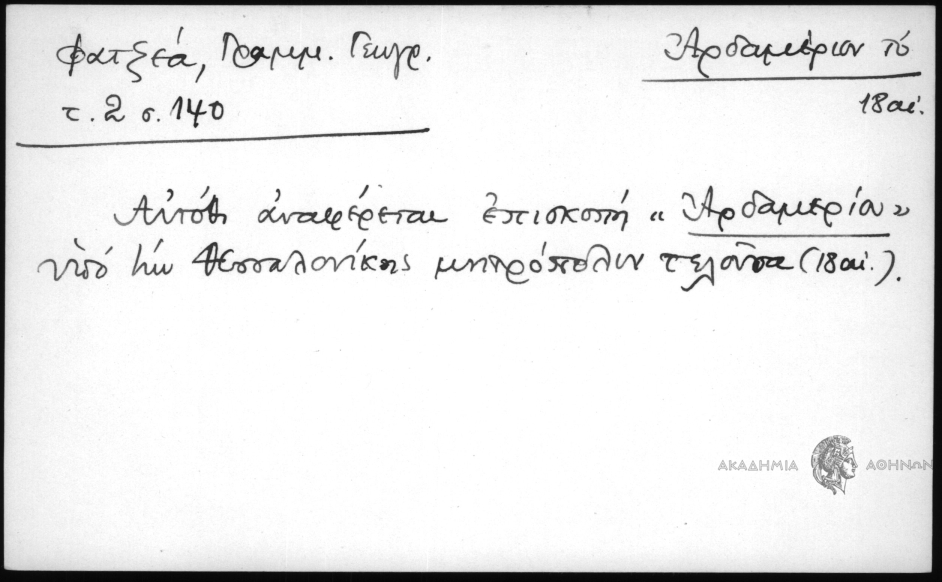 Φατζεά, Γραμμ. Γεωγρ.
τ. 2 σ. 140
Ἀρδαμέριον τό
18 αἰ.
Αὐτόθι ἀναφέρεται ἐπισκοπή «Ἀρδαμερίου»
ὑπό τήν Θεσσαλονίκης μητρόπολιν τελοῦσα (18 αἰ.).
ΑΚΑΔΗΜΙΑ ΑΘΗΝΩΝ